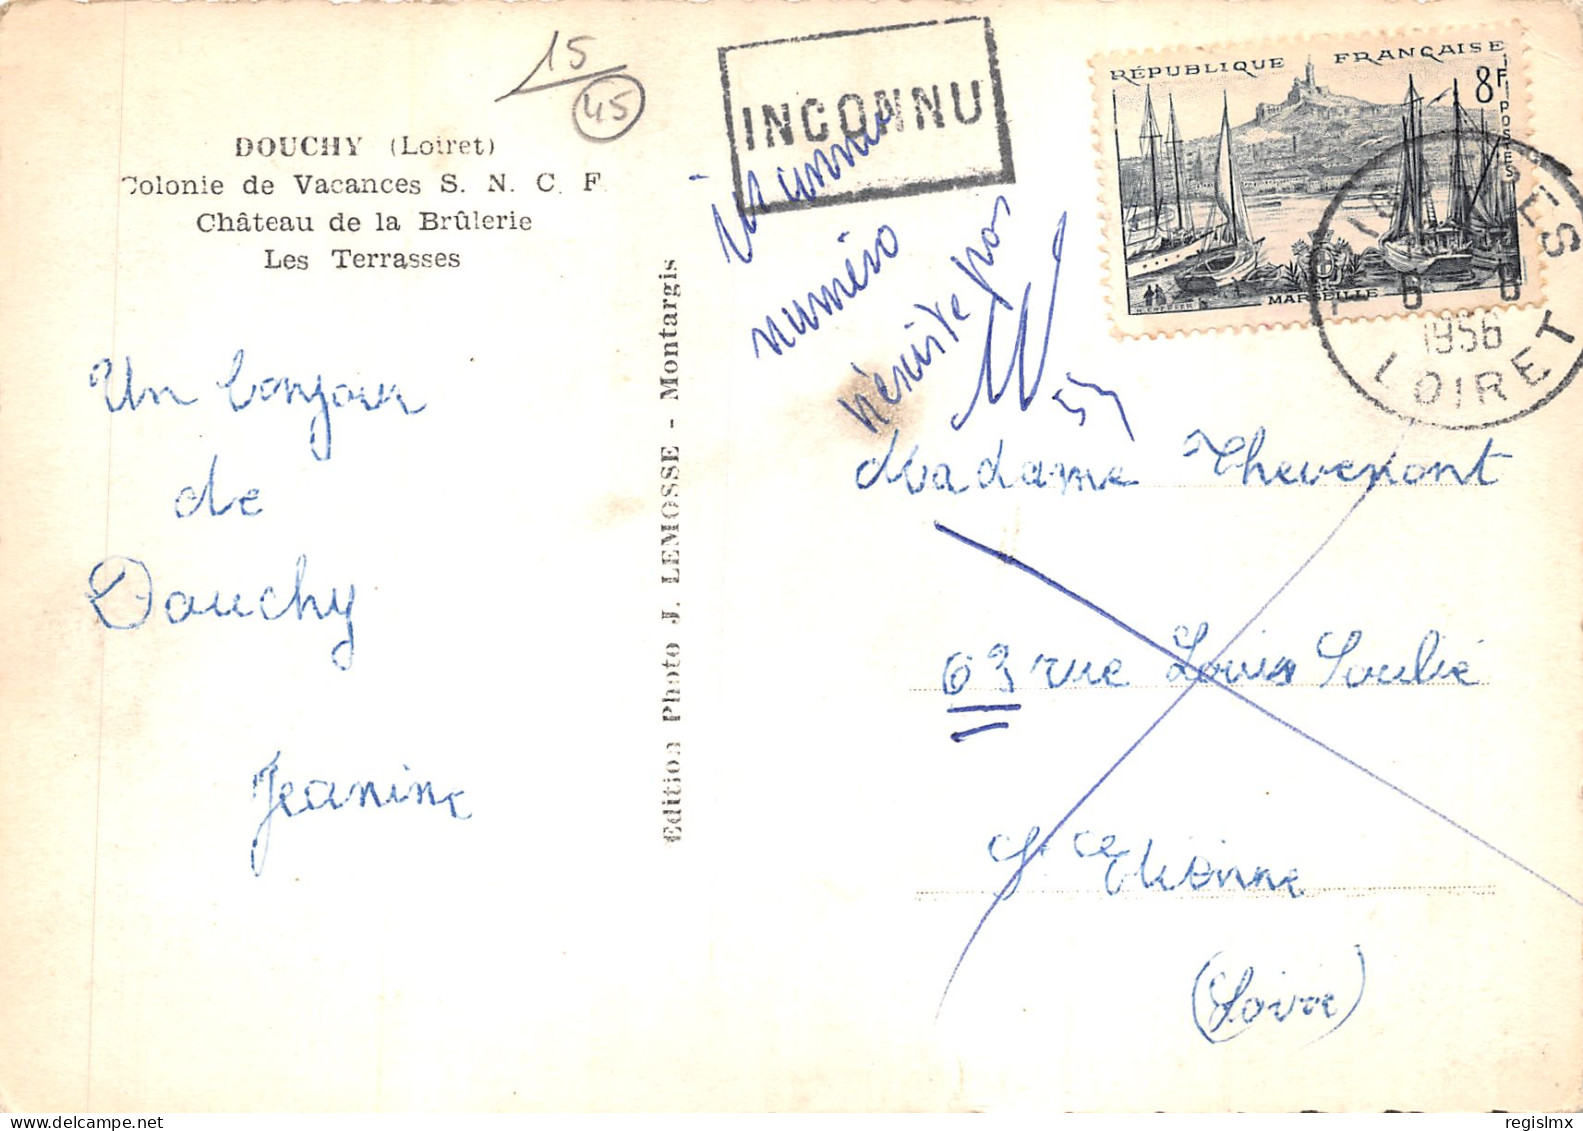 15
45
DOUCHY (Loiret)
Colonie de Vacances S. N. C. F.
Château de la Brûlerie
Les Terrasses
Un bonjour
de
Douchy
Jeanine
Edition Photo J. LEMOSSE - Montargis
INCONNU
inconnu
numéro
n'existe pas
RÉPUBLIQUE FRANÇAISE
8F
POSTES
MARSEILLE
6 8
1956
LOIRET
Madame Thevenont
63 rue Louis Soulié
St Etienne
(Loire)
regislmx